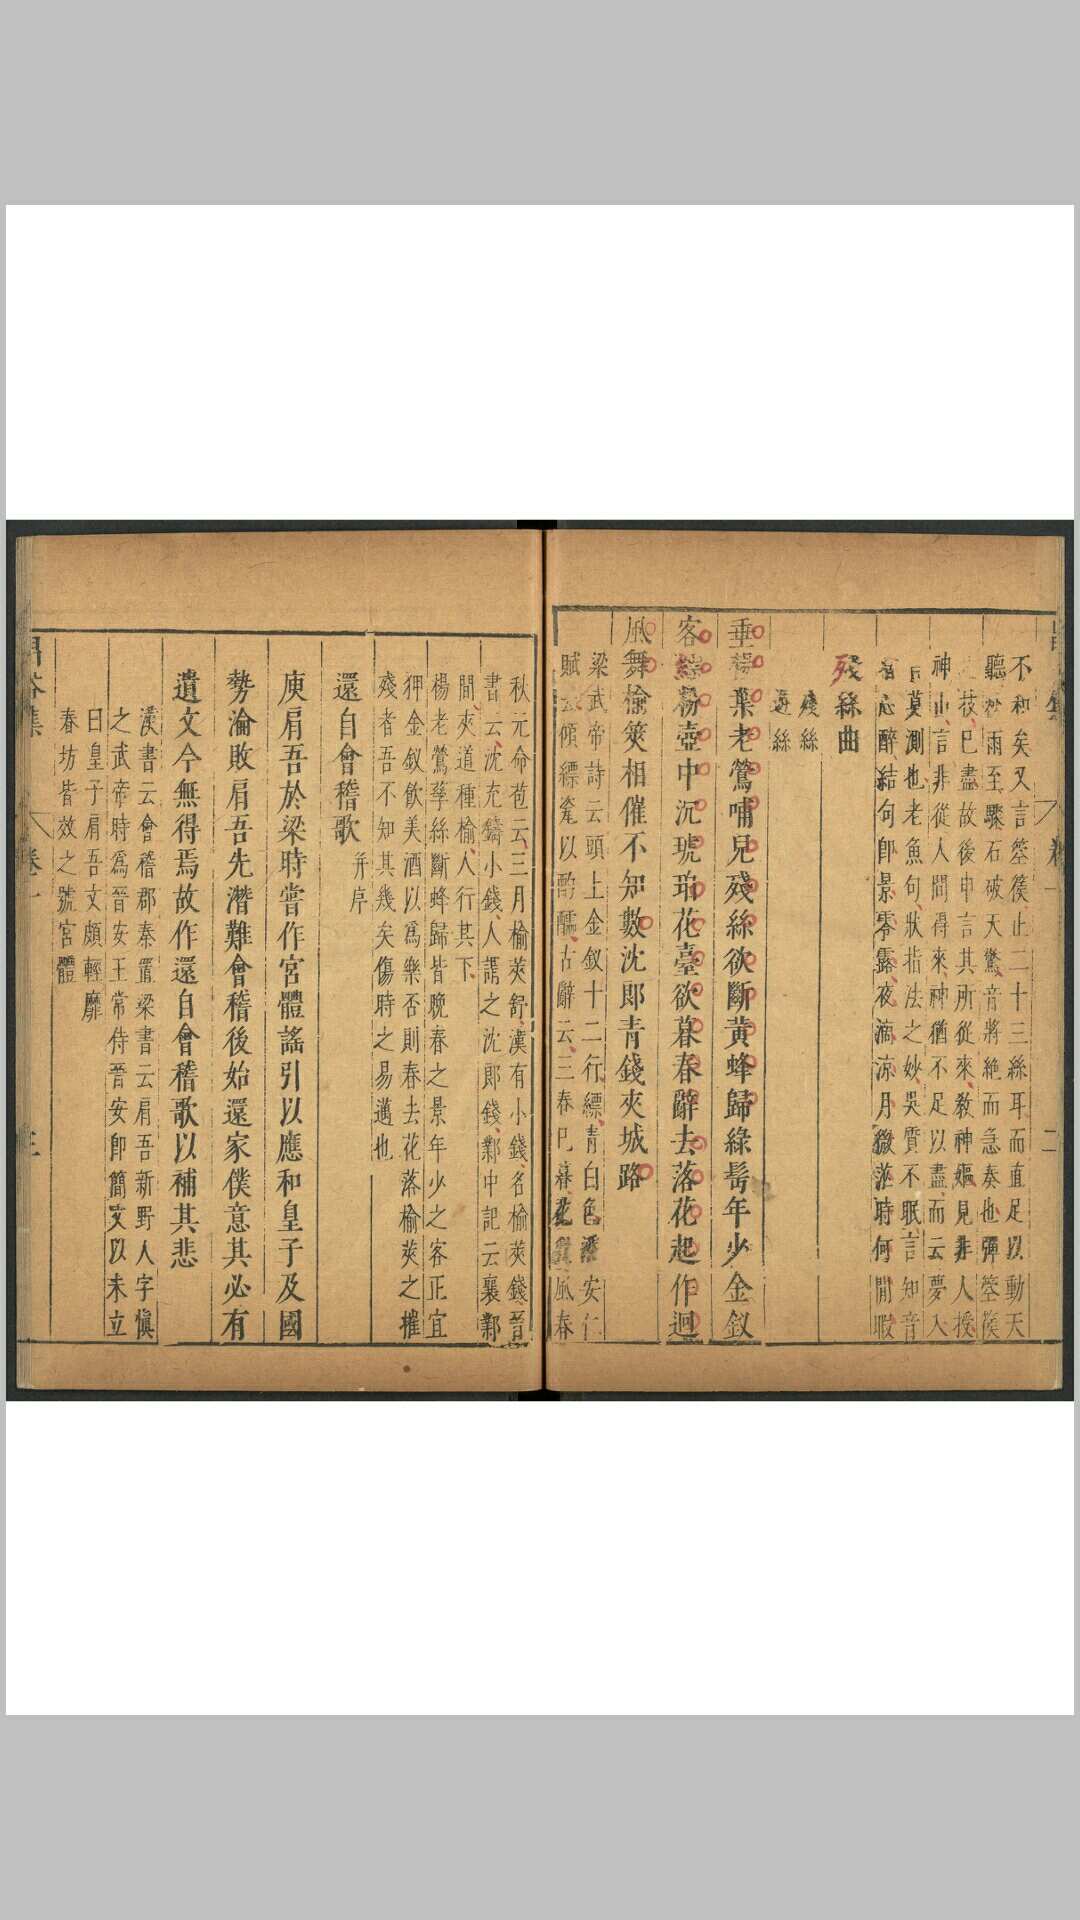 不和矣又言箜篌止二十三絲耳而直足以動天
聽於雨至驟石破天驚音將絕而急奏也彈箜篌
技已盡故後申言其所從來教神嫗見非人授
神山言非從人間得來神猶不足以盡而云夢入
莫測也老魚句狀指法之妙吳質不眠言知音
者心醉結句即景零露夜滴涼月微茫時何閒暇
殘絲曲
殘絲
垂楊葉老鶯哺兒殘絲欲斷黃蜂歸綠鬂年少金釵
客縹粉壺中沉琥珀花臺欲暮春辭去落花起作迴
風舞榆筴相催不知數沈郎青錢夾城路
梁武帝詩云頭上金釵十二行縹青白色潘安仁
賦云傾縹瓷以酌醽古辭云三春已暮花從風春
秋元命苞云三月榆莢舒漢有小錢名榆莢錢晉
書云沈充鑄小錢人謂之沈郎錢鄴中記云襄鄴
間夾道種榆人行其下
楊老鶯孳絲斷蜂歸皆晚春之景年少之客正宜
狎金釵飲美酒以為樂否則春去花落榆莢之摧
殘者吾不知其幾矣傷時之易邁也
還自會稽歌 并序
庾肩吾於梁時嘗作宮體謠引以應和皇子及國
勢淪敗肩吾先潛難會稽後始還家僕意其必有
遺文今無得焉故作還自會稽歌以補其悲
漢書云會稽郡秦置梁書云肩吾新野人字慎
之武帝時為晉安王常侍晉安即簡文以未立
曰皇子肩吾文頗輕靡
春坊皆效之號宮體